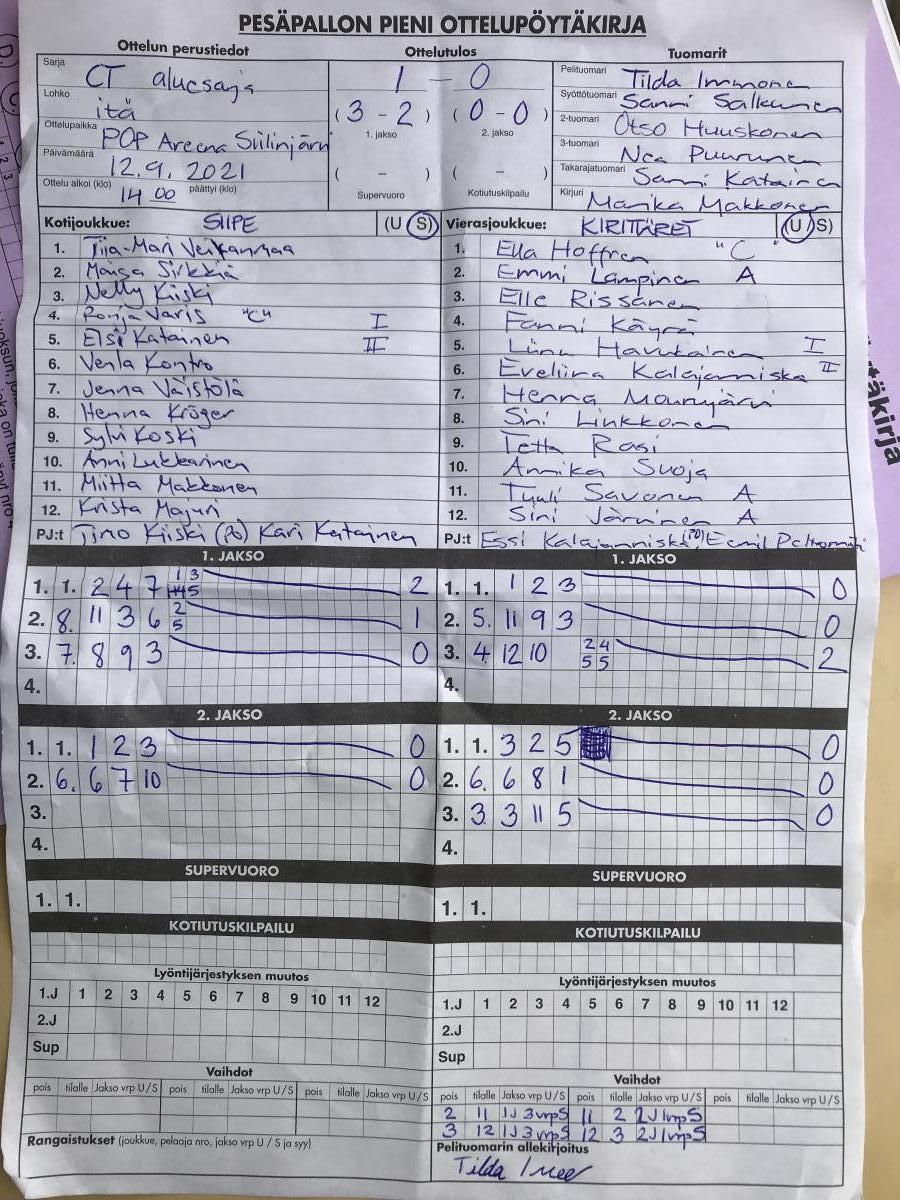 PESÄPALLON PIENI OTTELUPÖYTÄKIRJA
Ottelun perustiedot Ottelutulos Tuomarit
Sarja CT aluesarja 1 - 0 Pelituomari Tilda Immonen
Lohko itä (3 - 2) (0 - 0) Syöttötuomari Sanni Salkunen
1. jakso 2. jakso
Ottelupaikka POP Areena Siilinjärvi 2-tuomari Otso Huuskonen
Päivämäärä 12.9. 2021 ( - ) ( - ) 3-tuomari Nea Puurunen
Ottelu alkoi (klo) 14 00 päättyi (klo) Supervuoro Kotiutuskilpailu Takarajatuomari Sanni Katainen
Kirjuri Marika Makkonen
Kotijoukkue: SIIPE (U S) Vierasjoukkue: KIRITTÄRET (U S)
1. Tiia-Mari 1. Ella Hoffren "C"
2. Maisa Sirkkiä 2. Emmi Lampinen A
3. Nelly Kiiski 3. Elle Rissanen
4. Ronja Varis "C" I 4. Fanni Käyrä
5. Elsi Katainen II 5. Linu Havukainen I
6. Venla Kontro 6. Eveliina Kalajanniska II
7. Jenna Väistölä 7. Henna
8. Henna Kröger 8. Sini Linkkonen
9. Sylvi Koski 9. Tetta Rasi
10. Anni Lukkarinen 10. Annika Suoja
11. Miitta Makkonen 11. Tuuli Savonen A
12. Krista Majuri 12. Sini Järvinen A
PJ:t Timo Kiiski Kari Katainen PJ:t Essi Kalajanniska Eemil
1. JAKSO 1. JAKSO
1. 1. 2 4 7 1 3 5 2 1. 1. 1 2 3 0
2. 8. 11 3 6 2 5 1 2. 5. 11 9 3 0
3. 7. 8 9 3 0 3. 4. 12 10 2 4 5 5 2
4. 4.
2. JAKSO 2. JAKSO
1. 1. 1 2 3 0 1. 1. 3 2 5 0
2. 6. 6 7 10 0 2. 6. 6 8 1 0
3. 3. 3. 3 11 5 0
4. 4.
SUPERVUORO SUPERVUORO
1. 1. 1. 1.
KOTIUTUSKILPAILU KOTIUTUSKILPAILU
Lyöntijärjestyksen muutos Lyöntijärjestyksen muutos
1.J 1 2 3 4 5 6 7 8 9 10 11 12 1.J 1 2 3 4 5 6 7 8 9 10 11 12
2.J 2.J
Sup Sup
Vaihdot Vaihdot
pois tilalle Jakso vrp U/S pois tilalle Jakso vrp U/S pois tilalle Jakso vrp U/S pois tilalle Jakso vrp U/S pois tilalle Jakso vrp U/S pois tilalle Jakso vrp U/S
2 11 1J 3vrpS 11 2 2J 1vrpS
3 12 1J 3vrpS 12 3 2J 1vrpS
Rangaistukset (joukkue, pelaaja nro, jakso vrp U / S ja syy) Pelituomarin allekirjoitus
Tilda